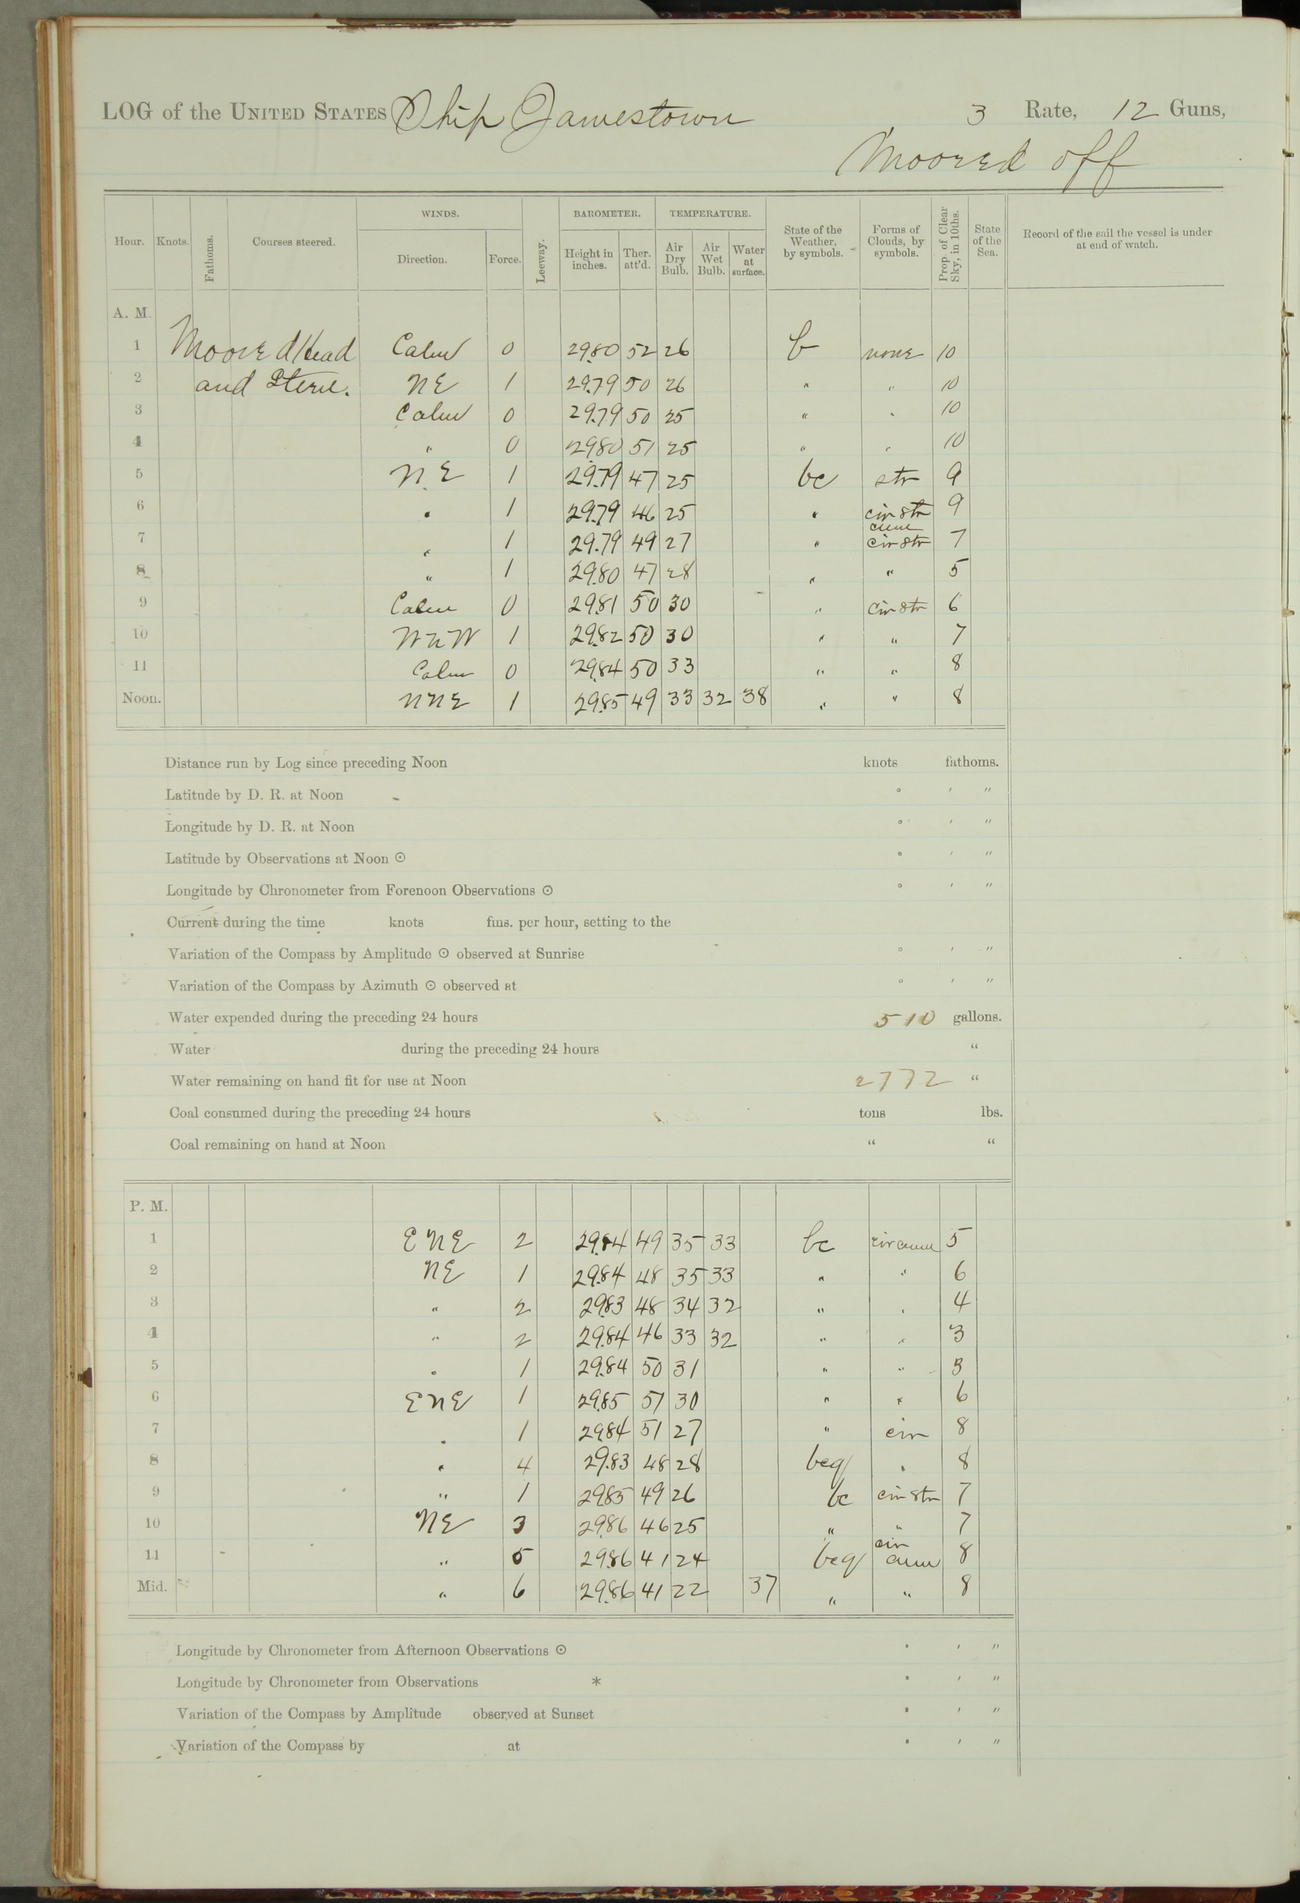 LOG of the UNITED STATES Ship Jamestown 3 Rate, 12 Guns,
Moored off
Hour. Knots. Fathoms. Courses steered. WINDS. Direction. Force. Leeway. BAROMETER. Height in inches. Ther. att'd. TEMPERATURE. Air Dry Bulb. Air Wet Bulb. Water at surface. State of the Weather, by symbols. Forms of Clouds, by symbols. Prop. of Clear Sky, in 10ths. State of the Sea. Record of the sail the vessel is under at end of watch.
A. M.
1 Moored Head Calm 0 29.80 52 26 b none 10
2 and Stern. NE 1 29.79 50 26 " " 10
3 Calm 0 29.79 50 25 " " 10
4 " 0 29.80 51 25 " " 10
5 NE 1 29.79 47 25 bc str 9
6 " 1 29.79 46 25 " cir str 9
7 " 1 29.79 49 27 " cum cir str 7
8 " 1 29.80 47 28 " " 5
9 Calm 0 29.81 50 30 " cir str 6
10 WNW 1 29.82 50 30 " " 7
11 Calm 0 29.84 50 33 " " 8
Noon. NNE 1 29.85 49 33 32 38 " " 8
Distance run by Log since preceding Noon knots fathoms.
Latitude by D. R. at Noon ° ′ ″
Longitude by D. R. at Noon ° ′ ″
Latitude by Observations at Noon ☉ ° ′ ″
Longitude by Chronometer from Forenoon Observations ☉ ° ′ ″
Current during the time knots fms. per hour, setting to the
Variation of the Compass by Amplitude ☉ observed at Sunrise ° ′ ″
Variation of the Compass by Azimuth ☉ observed at ° ′ ″
Water expended during the preceding 24 hours 510 gallons.
Water during the preceding 24 hours "
Water remaining on hand fit for use at Noon 2772 "
Coal consumed during the preceding 24 hours tons lbs.
Coal remaining on hand at Noon " "
P. M.
1 ENE 2 29.84 49 35 33 bc cir cum 5
2 NE 1 29.84 48 35 33 " " 6
3 " 2 29.83 48 34 32 " " 4
4 " 2 29.84 46 33 32 " " 3
5 " 1 29.84 50 31 " " 3
6 ENE 1 29.85 51 30 " " 6
7 " 1 29.84 51 27 " cir 8
8 " 4 29.83 48 28 bcq " 8
9 " 1 29.85 49 26 bc cir str 7
10 NE 3 29.86 46 25 " " 7
11 " 5 29.86 41 24 bcq cir cum 8
Mid. " 6 29.86 41 22 37 " " 8
Longitude by Chronometer from Afternoon Observations ☉ ° ′ ″
Longitude by Chronometer from Observations * ° ′ ″
Variation of the Compass by Amplitude observed at Sunset ° ′ ″
Variation of the Compass by at ° ′ ″